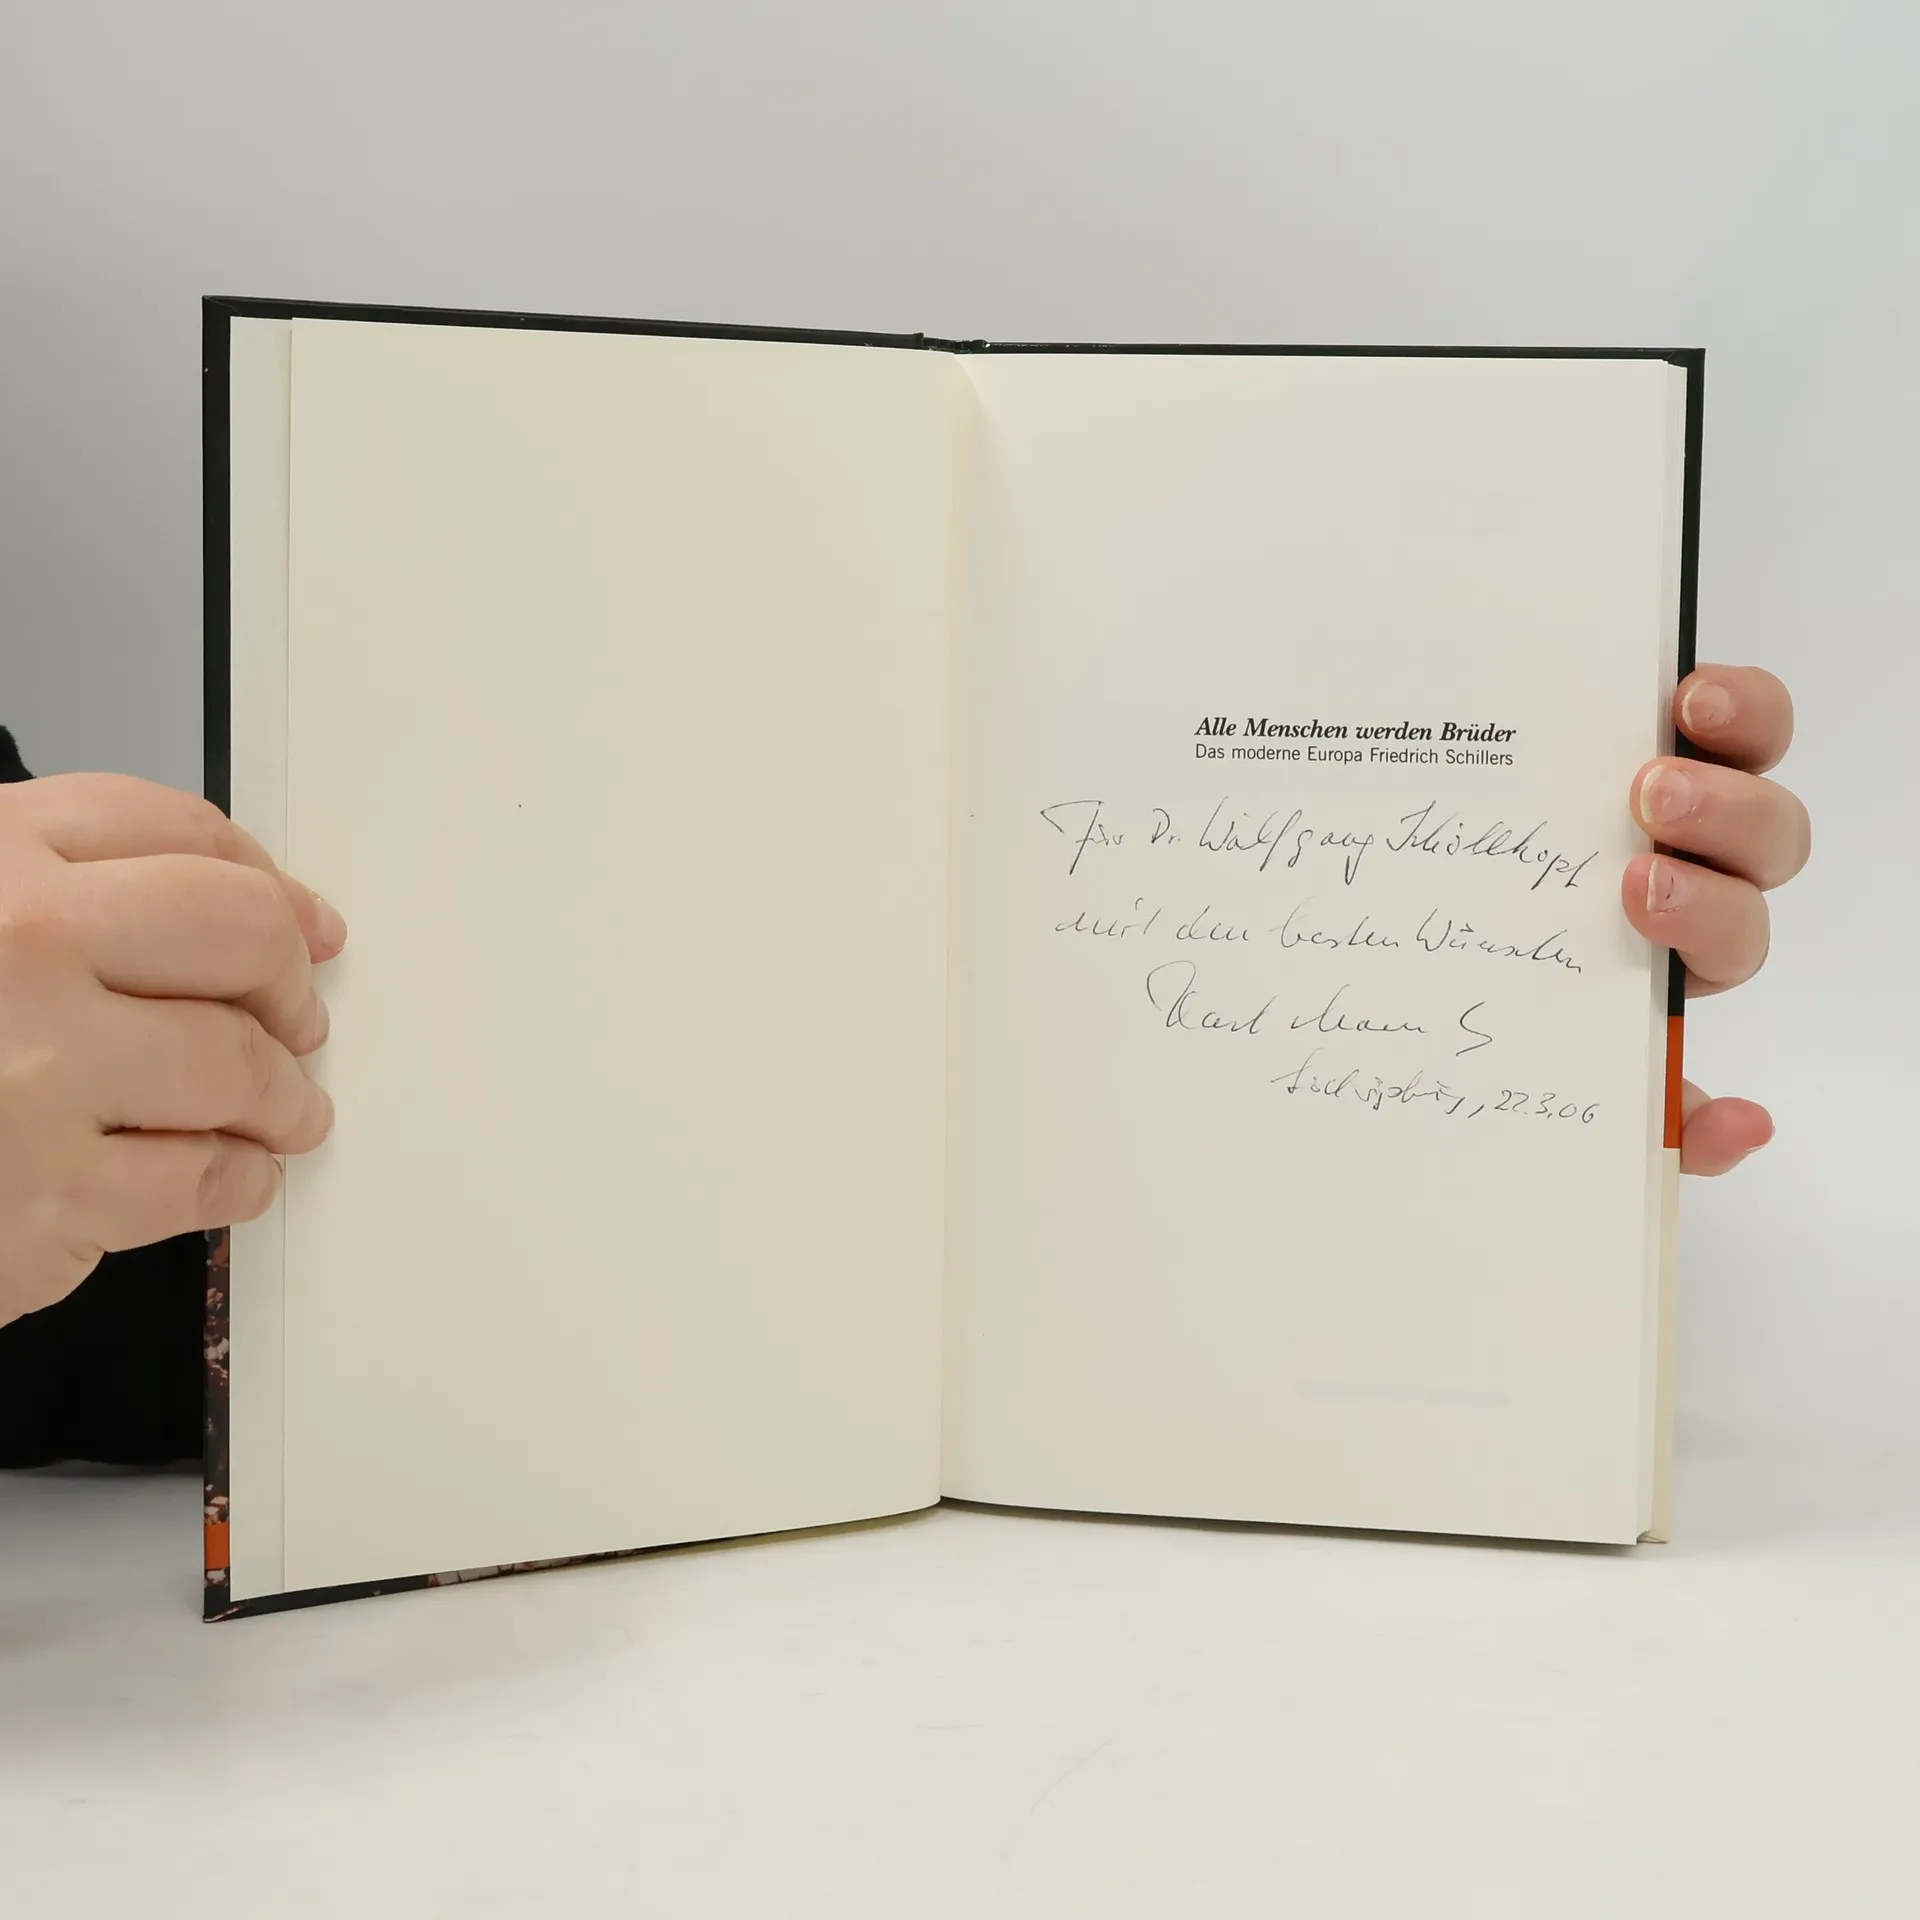 Alle Menschen werden Brüder
Das moderne Europa Friedrich Schillers
Für Dr. Wolfgang Schöllkopf
mit den besten Wünschen
Karl
Ludwigsburg, 22.3.06